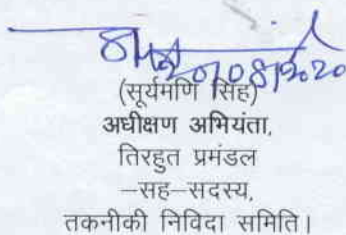 20/08/2020
(सूर्यमणि सिंह)
अधीक्षण अभियंता,
तिरहुत प्रमंडल
–सह–सदस्य,
तकनीकी निविदा समिति।